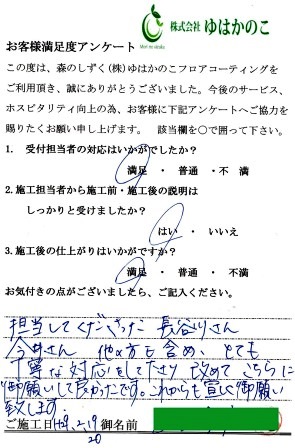 株式会社 ゆはかのこ
Mori no shizuku
お客様満足度アンケート
この度は、森のしずく(株)ゆはかのこフロアコーティングを
ご利用頂き、誠にありがとうございました。今後のサービス、
ホスピタリティ向上の為、お客様に下記アンケートへご協力を
賜りたくお願い申し上げます。 該当欄を○で囲って下さい。
1. 受付担当者の対応はいかがでしたか?
満足 ・ 普通 ・ 不満
2. 施工担当者から施工前・施工後の説明は
しっかりと受けましたか?
はい ・ いいえ
3. 施工後の仕上がりはいかがですか?
満足 ・ 普通 ・ 不満
お気付きの点がございましたら、ご記入ください。
担当してくださった 長谷川さん
今井さん 他の方も含め、とても
丁寧な対応をして下さり 改めてこちらに
御願いして良かったです。これからも宜しく御願い
致します。
ご施工日 H29.2.19 御名前
20